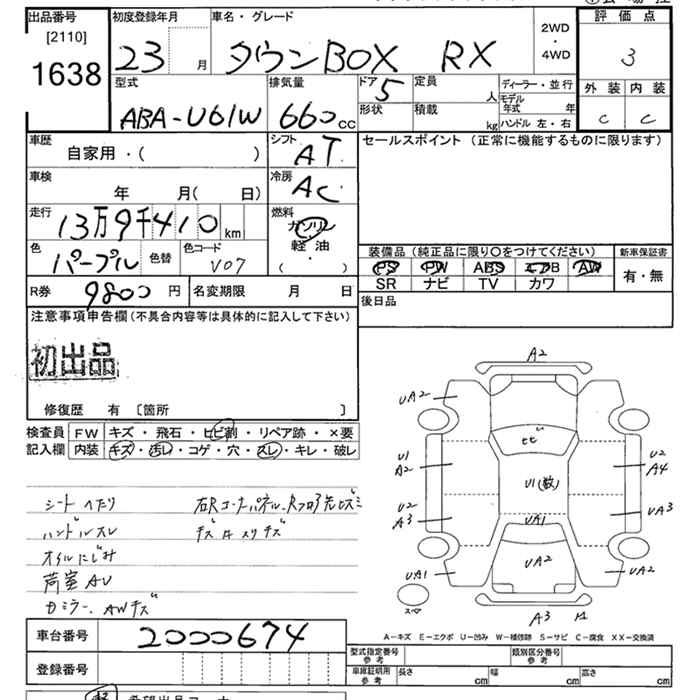 出品番号
[2110]
1638
初度登録年月
23 月
車名・グレード
タウンBOX RX
2WD
・
4WD
評価点
3
外装 内装
C C
型式
ABA-U61W
排気量
660cc
ドア
5
定員
人
形状
積載
kg
ディーラー・並行
モデル年式 年
ハンドル 左・右
車歴
自家用・( )
シフト
AT
セールスポイント (正常に機能するものに限ります)
車検
年 月( 日)
冷房
AC
走行
13万9千410km
燃料
ガソリン
軽油
・
( )
色
パープル
色替
色コード
V07
装備品 (純正品に限り〇をつけてください)
PS PW ABS エアB AW
SR ナビ TV カワ
新車保証書
有・無
R券 9800円
名変期限 月 日
後日品
注意事項申告欄(不具合内容等は具体的に記入して下さい)
初出品
修復歴 有 〔箇所 〕
検査員記入欄
FW キズ・飛石・ヒビ割・リペア跡・×要
内装 キズ・汚レ・コゲ・穴・スレ・キレ・破レ
シートへたり
ハンドルスレ
オイルにじみ
荷室AU
カミラー、AWキズ
A2
UA2
ヒビ
U1
A2
U2
A4
U1(数)
U2
A3
UA3
UA1
UA2
UA1
UA2
スペア
A3
A-キズ E-エクボ U-凹み W-補修跡 S-サビ C-腐食 XX-交換済
車台番号
2000674
登録番号
型式指定番号
参考
類別区分番号
参考
車庫証明用
参考
長さ cm
幅 cm
高さ cm
希望出品コーナー